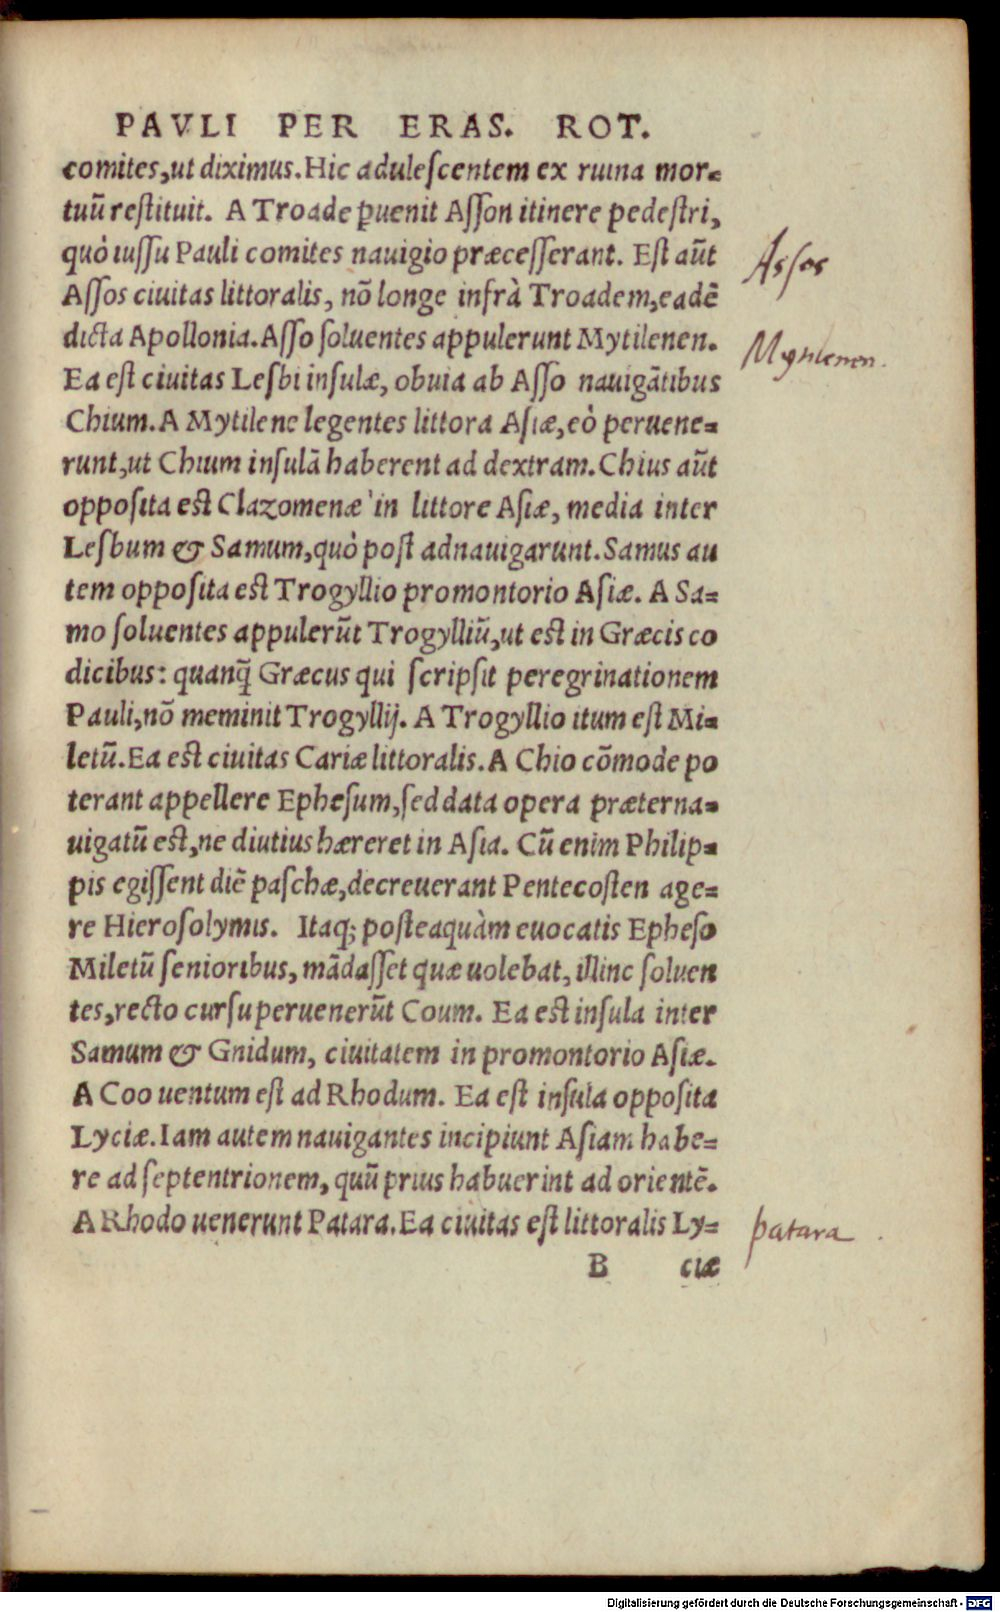 PAVLI PER ERAS. ROT.
comites, ut diximus. Hic adulescentem ex ruina mor-
tuū restituit. A Troade ꝑuenit Asson itinere pedestri,
quò iussu Pauli comites nauigio præcesserant. Est aūt
Assos
Assos ciuitas littoralis, nō longe infrà Troadem, eadē
dicta Apollonia. Asso soluentes appulerunt Mytilenen.
Mytilenen.
Ea est ciuitas Lesbi insulæ, obuia ab Asso nauigātibus
Chium. A Mytilene legentes littora Asiæ, eò peruene-
runt, ut Chium insulā haberent ad dextram. Chius aūt
opposita est Clazomenæ in littore Asiæ, media inter
Lesbum & Samum, quò post adnauigarunt. Samus au
tem opposita est Trogyllio promontorio Asiæ. A Sa-
mo soluentes appulerūt Trogylliū, ut est in Græcis co
dicibus: quanq̄ Græcus qui scripsit peregrinationem
Pauli, nō meminit Trogyllij. A Trogyllio itum est Mi-
letū. Ea est ciuitas Cariæ littoralis. A Chio cōmode po
terant appellere Ephesum, sed data opera præterna-
uigatū est, ne diutius hæreret in Asia. Cū enim Philip-
pis egissent diē paschæ, decreuerant Pentecosten age-
re Hierosolymis. Itaq; posteaquàm euocatis Epheso
Miletū senioribus, mādasset quæ uolebat, illinc soluen
tes, recto cursu peruenerūt Coum. Ea est insula inter
Samum & Gnidum, ciuitatem in promontorio Asiæ.
A Coo uentum est ad Rhodum. Ea est insula opposita
Lyciæ. Iam autem nauigantes incipiunt Asiam habe-
re ad septentrionem, quū prius habuerint ad orientē.
A Rhodo uenerunt Patara. Ea ciuitas est littoralis Ly-
patara
B ciæ
Digitalisierung gefördert durch die Deutsche Forschungsgemeinschaft - DFG